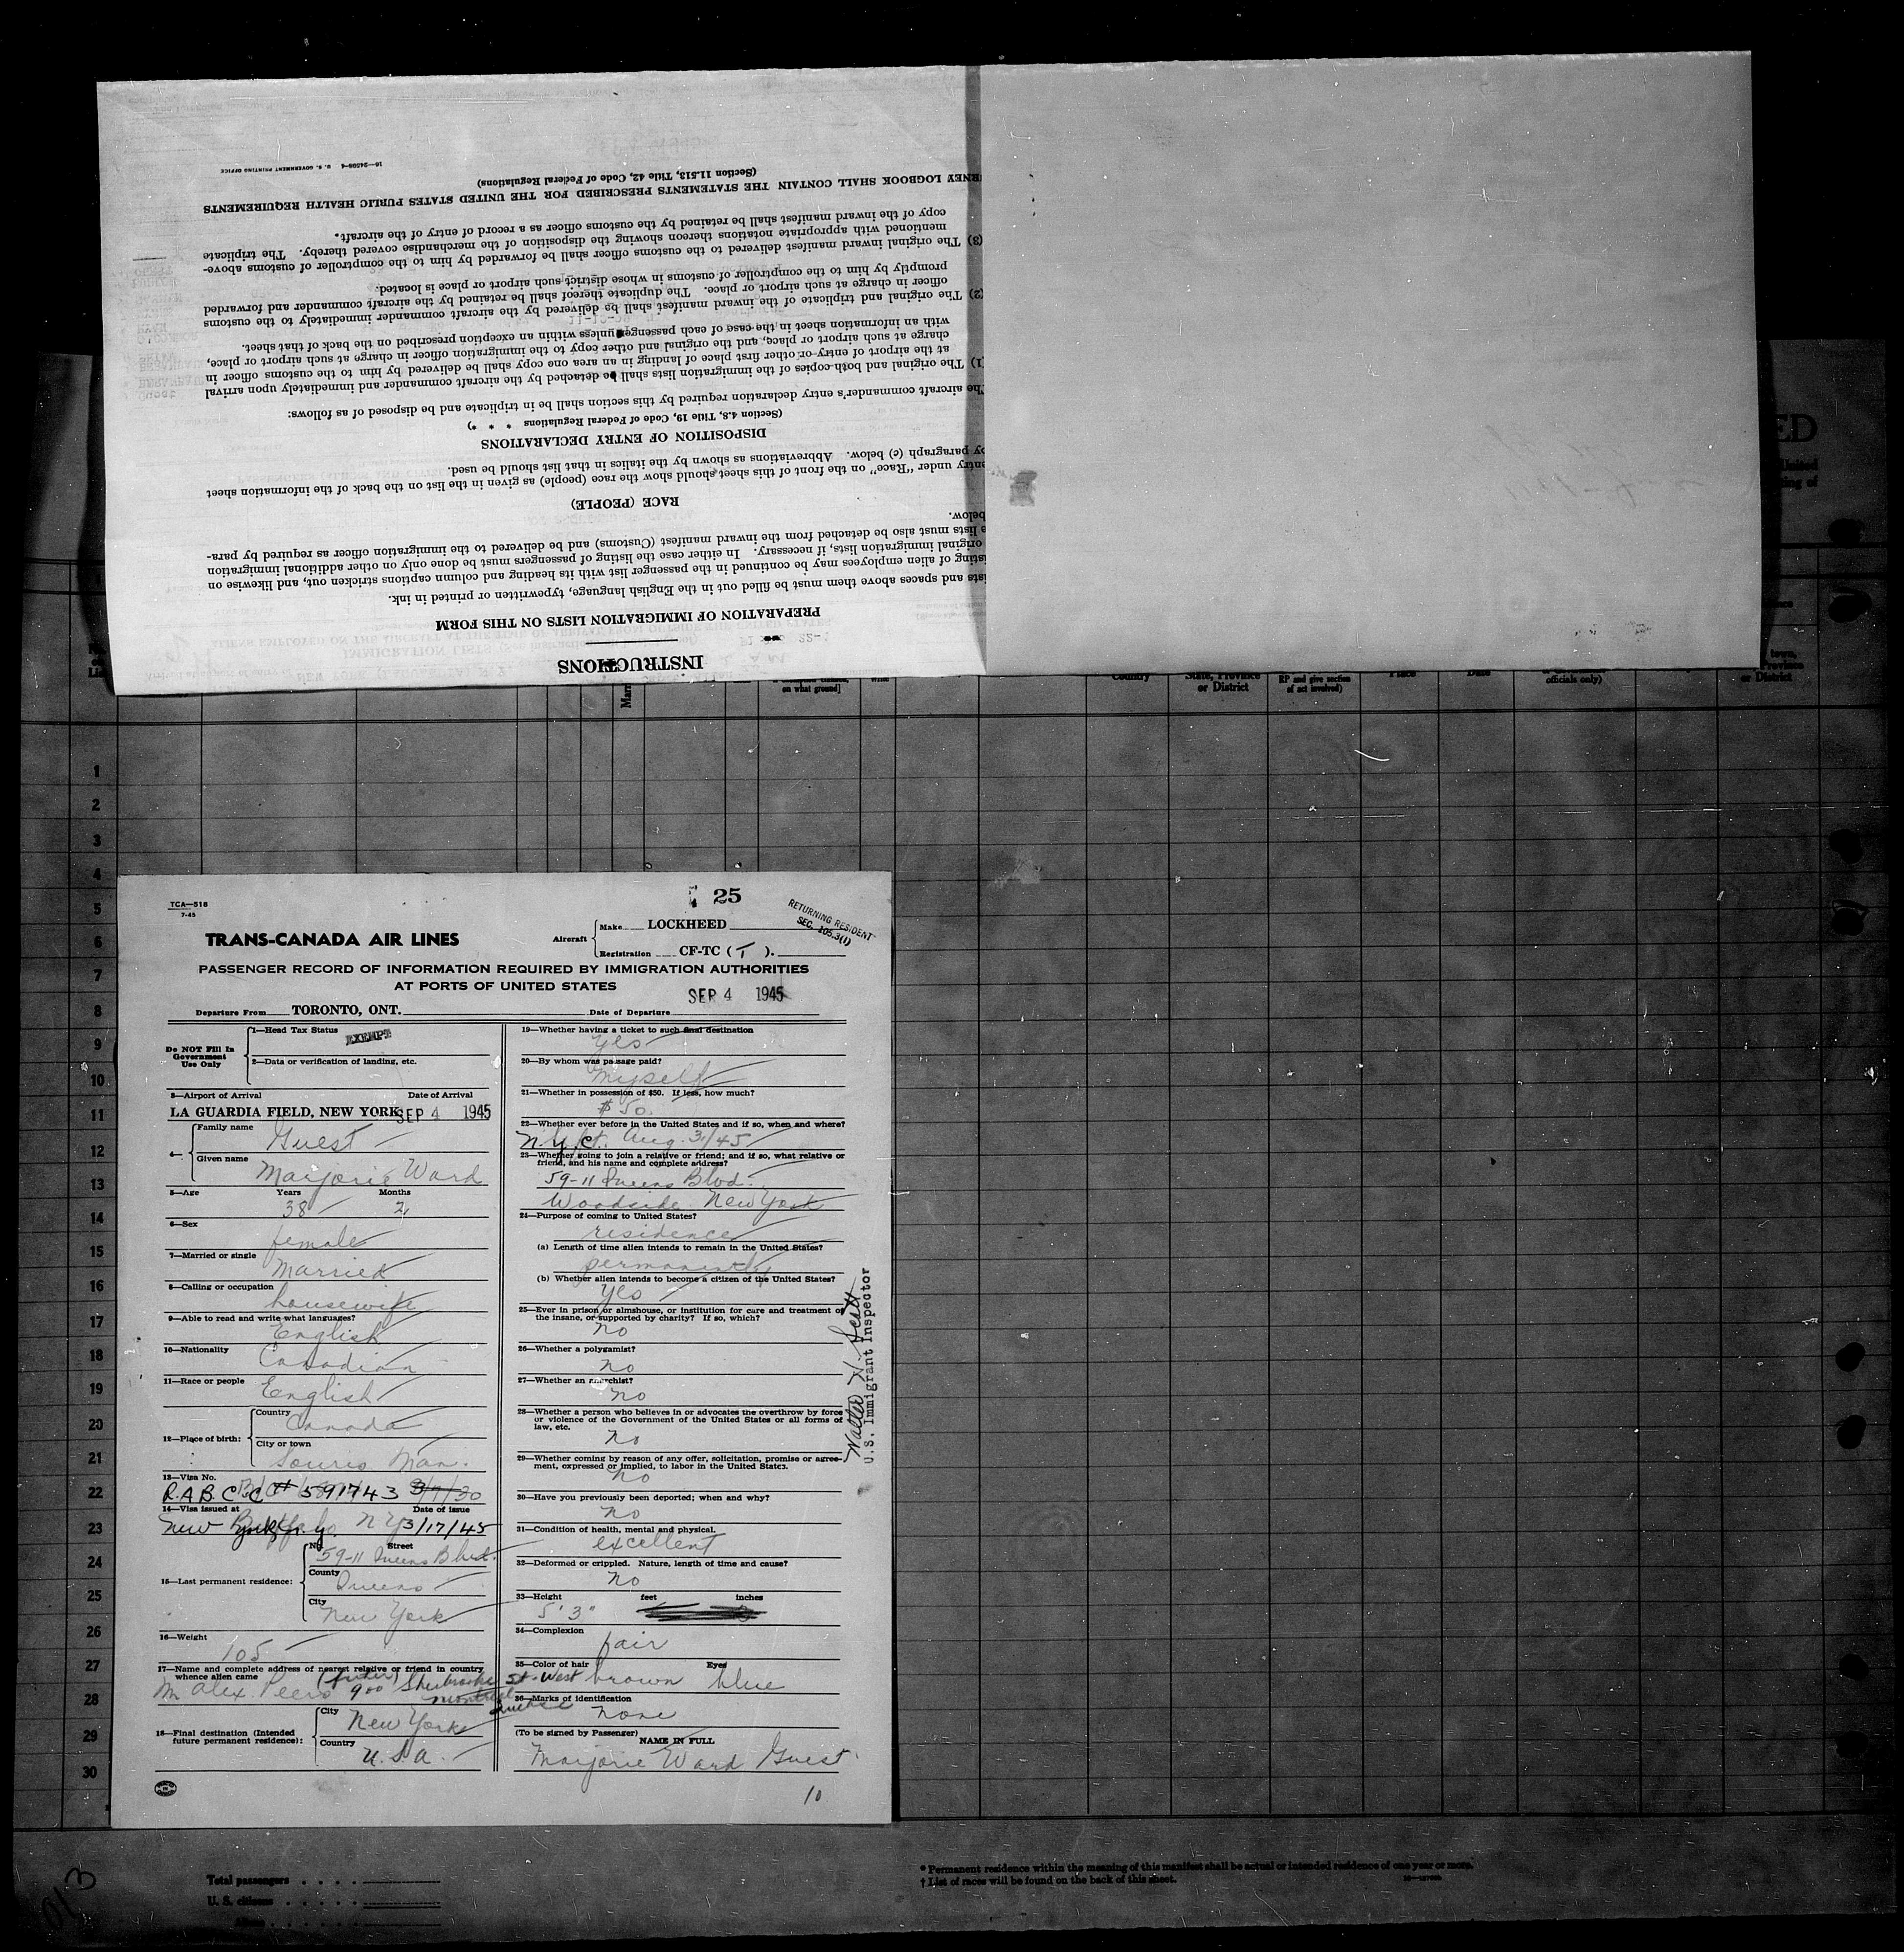 INSTRUCTIONS
PREPARATION OF IMMIGRATION LISTS ON THIS FORM
ists and spaces above them must be filled out in the English language, typewritten or printed in ink.
sting of alien employees may be continued in the passenger list with its heading and column captions stricken out, and likewise on
original immigration lists, if necessary. In either case the listing of passengers must be done only on other additional immigration
lists must also be detached from the inward manifest (Customs) and be delivered to the immigration officer as required by para-
below.
RACE (PEOPLE)
entry under "Race" on the front of this sheet should show the race (people) as given in the list on the back of the information sheet
by paragraph (c) below. Abbreviations as shown by the italics in that list should be used.
DISPOSITION OF ENTRY DECLARATIONS
(Section 4.8, Title 19, Code of Federal Regulations * * *)
he aircraft commander's entry declaration required by this section shall be in triplicate and be disposed of as follows:
1) The original and both copies of the immigration lists shall be detached by the aircraft commander and immediately upon arrival
at the airport of entry or other first place of landing in an area one copy shall be delivered by him to the customs officer in
charge at such airport or place, and the original and other copy to the immigration officer in charge at such airport or place,
with an information sheet in the case of each passenger unless within an exception prescribed on the back of that sheet.
(2) The original and triplicate of the inward manifest shall be delivered by the aircraft commander immediately to the customs
officer in charge at such airport or place. The duplicate thereof shall be retained by the aircraft commander and forwarded
promptly by him to the comptroller of customs in whose district such airport or place is located.
(3) The original inward manifest delivered to the customs officer shall be forwarded by him to the comptroller of customs above-
mentioned with appropriate notations thereon showing the disposition of the merchandise covered thereby. The triplicate
copy of the inward manifest shall be retained by the customs officer as a record of entry of the aircraft.
RNEY LOGBOOK SHALL CONTAIN THE STATEMENTS PRESCRIBED FOR THE UNITED STATES PUBLIC HEALTH REQUIREMENTS
(Section 11.513, Title 42, Code of Federal Regulations)
16—24598-4 U. S. GOVERNMENT PRINTING OFFICE
ED
on what ground]
Country
State, Province
or District
RP and give section
of act involved)
Place
Date
officials only)
town,
Province
or District
1
2
3
4
5
6
7
8
9
10
11
12
13
14
15
16
17
18
19
20
21
22
23
24
25
26
27
28
29
30
TCA—518
7-45
25
RETURNING RESIDENT
SEC. 105.3(1)
TRANS-CANADA AIR LINES
Aircraft
Make LOCKHEED
Registration CF-TC ( T ).
PASSENGER RECORD OF INFORMATION REQUIRED BY IMMIGRATION AUTHORITIES
AT PORTS OF UNITED STATES
SEP 4 1945
Departure From TORONTO, ONT. Date of Departure
Do NOT Fill In
Government
Use Only
1—Head Tax Status
EXEMPT
2—Data or verification of landing, etc.
3—Airport of Arrival Date of Arrival
LA GUARDIA FIELD, NEW YORK SEP 4 1945
4—
Family name
Guest
Given name
Marjorie Ward
5—Age Years Months
38 2
6—Sex
female
7—Married or single
Married
8—Calling or occupation
housewife
9—Able to read and write what languages?
English
10—Nationality
Canadian
11—Race or people
English
12—Place of birth:
Country
Canada
City or town
Souris Man.
13—Visa No.
R.A.B.C.C # 591743
14—Visa issued at Date of issue
New York N.Y. 3/17/45
15—Last permanent residence:
No. Street
59-11 Queens Blvd.
County
Queens
City
New York
16—Weight
105
17—Name and complete address of nearest relative or friend in country
whence alien came
Mr Alex. Peers 900 Sherbrooke St. West
Montreal
Quebec
18—Final destination (Intended
future permanent residence):
City
New York
Country
U.S.A.
19—Whether having a ticket to such final destination
Yes
20—By whom was passage paid?
Myself
21—Whether in possession of $50. If less, how much?
$50.
22—Whether ever before in the United States and if so, when and where?
N.Y.C. Aug. 3/45
23—Whether going to join a relative or friend; and if so, what relative or
friend, and his name and complete address?
59-11 Queens Blvd.
Woodside New York
24—Purpose of coming to United States?
residence
(a) Length of time alien intends to remain in the United States?
permanently
(b) Whether alien intends to become a citizen of the United States?
Yes
25—Ever in prison or almshouse, or institution for care and treatment of
the insane, or supported by charity? If so, which?
No
26—Whether a polygamist?
No
27—Whether an anarchist?
No
28—Whether a person who believes in or advocates the overthrow by force
or violence of the Government of the United States or all forms of
law, etc.
No
29—Whether coming by reason of any offer, solicitation, promise or agree-
ment, expressed or implied, to labor in the United States.
No
30—Have you previously been deported; when and why?
No
31—Condition of health, mental and physical.
excellent
32—Deformed or crippled. Nature, length of time and cause?
No
33—Height feet inches
5' 3"
34—Complexion
fair
35—Color of hair Eyes
brown blue
36—Marks of identification
none
(To be signed by Passenger)
NAME IN FULL
Marjorie Ward Guest
10
Walter H. Scott
U.S. Immigrant Inspector
Total passengers
U. S. citizens
Aliens
* Permanent residence within the meaning of this manifest shall be actual or intended residence of one year or more.
† List of races will be found on the back of this sheet.